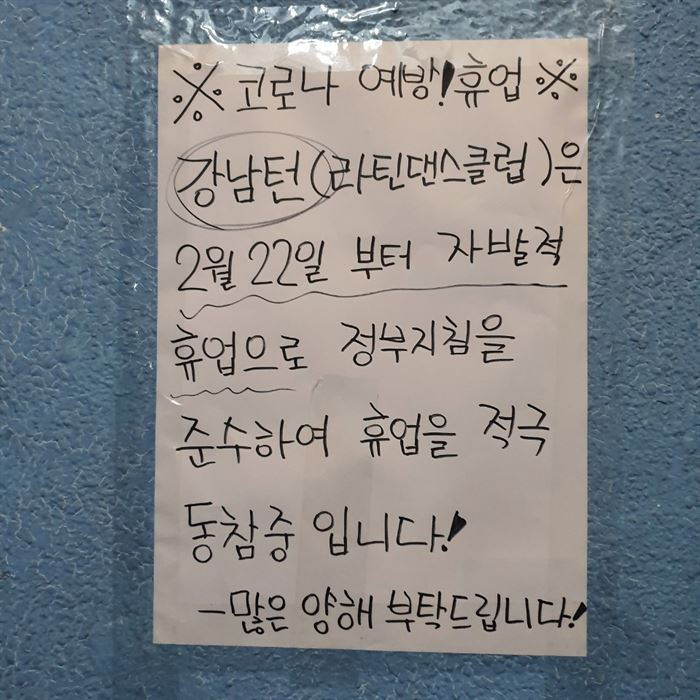 ※ 코로나 예방! 휴업 ※
강남턴(라틴댄스클럽)은
2월 22일 부터 자발적
휴업으로 정부지침을
준수하여 휴업을 적극
동참중 입니다!
- 많은 양해 부탁드립니다!